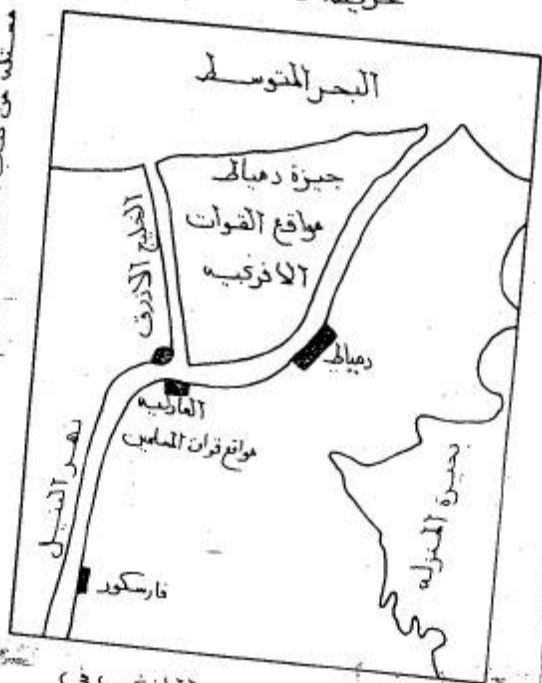 البحر المتوسط
جيزة دمياط
مواقع القوات
الافرنجيه
الخليج الازرق
دمياط
العادليه
مواقع قوات المسلمين
نهر النيل
بحيرة المنزله
فارسكور